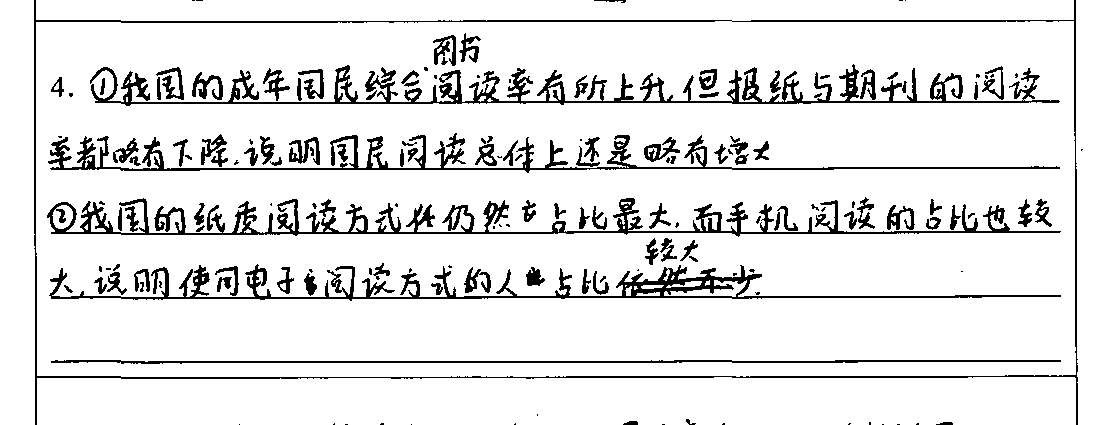 图书
4. ①我国的成年国民综合阅读率有所上升,但报纸与期刊的阅读
率都略有下降,说明国民阅读总体上还是略有增大
②我国的纸质阅读方式仍然占比最大,而手机阅读的占比也较
较大
大,说明使用电子阅读方式的人占比